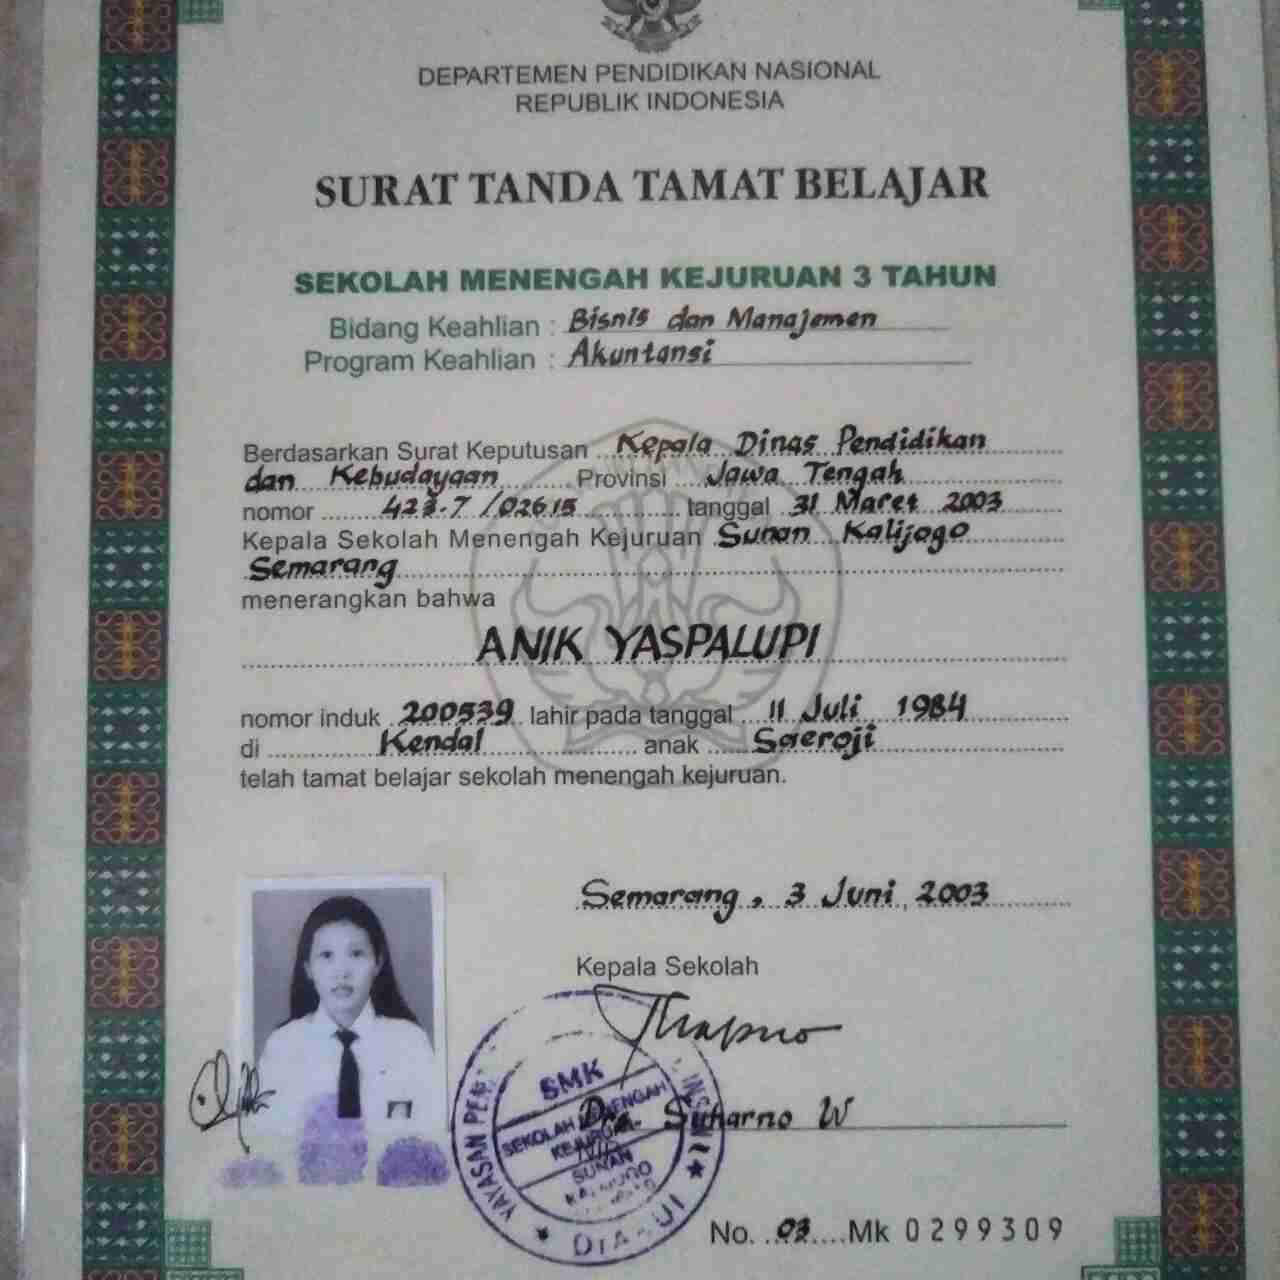 DEPARTEMEN PENDIDIKAN NASIONAL
REPUBLIK INDONESIA
SURAT TANDA TAMAT BELAJAR
SEKOLAH MENENGAH KEJURUAN 3 TAHUN
Bidang Keahlian : Bisnis dan Manajemen
Program Keahlian : Akuntansi
Berdasarkan Surat Keputusan Kepala Dinas Pendidikan
dan Kebudayaan Provinsi Jawa Tengah
nomor 423.7/02615 tanggal 31 Maret 2003
Kepala Sekolah Menengah Kejuruan Sunan Kalijogo
Semarang
menerangkan bahwa
ANIK YASPALUPI
nomor induk 200539 lahir pada tanggal 11 Juli 1984
di Kendal anak Saeroji
telah tamat belajar sekolah menengah kejuruan.
Semarang, 3 Juni 2003
Kepala Sekolah
Drs Suharno W
SMK
SEKOLAH MENENGAH
KEJURUAN
SUNAN
YAYASAN
No. 03 Mk 0299309